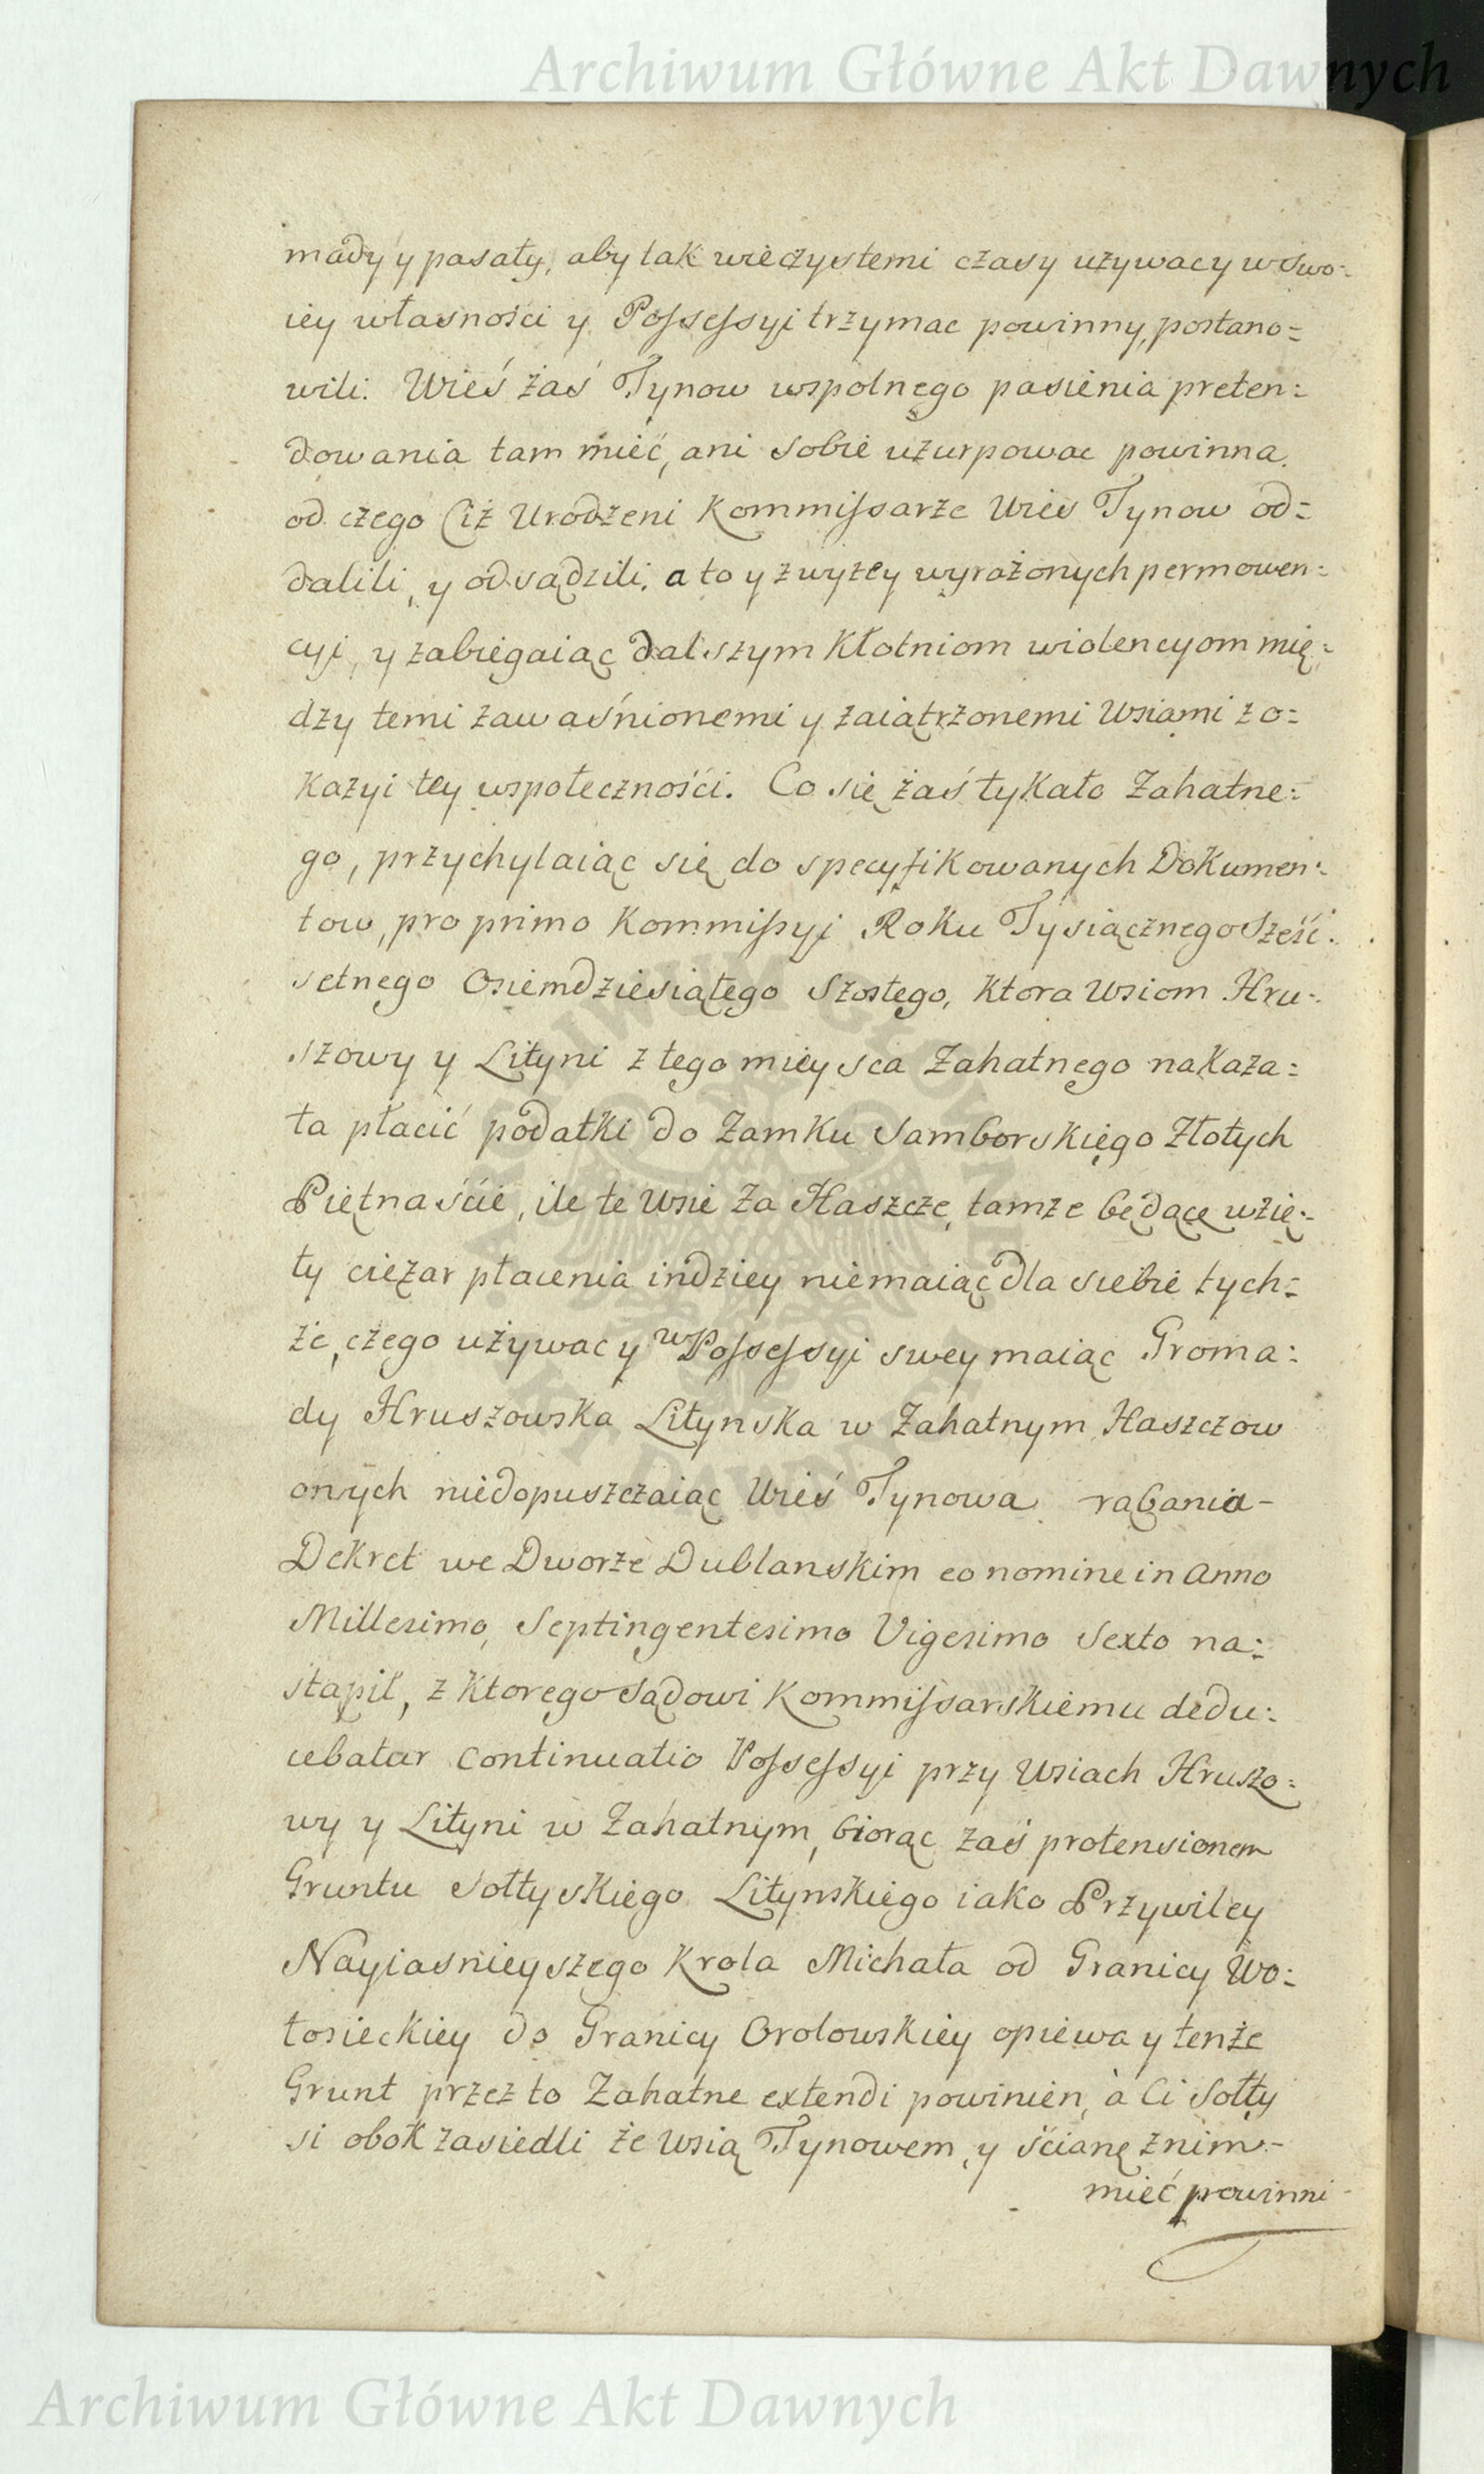 Archiwum Główne Akt Dawnych
mady y pasały, aby tak wieczystemi czasy używac y w swo=
iey własności y Possessyi trzymac powinny, postano=
wili. Wieś żaś Tynow wspolnego pasienia preten=
dowania tam mieć, ani sobie użurpowac powinna.
od czego Ciż Urodzeni Kommissarze Wies Tynow od=
dalili, y odsądzili. a to y z wyżey wyrażonych permowen=
cyi, y zabiegaiąc dalszym Kłotniom wiolencyom mię=
dzy temi zawaśnionemi y zaiątrzonemi Wsiami z o=
kazyi tey wspołeczności. Co się żaś tykało Zahatne=
go, przychylaiąc się do specyfikowanych Dokumen=
tow, pro primo Kommissyi Roku Tysiącznego Sześć
setnego Osiemdziesiątego Szostego, Ktora Wsiom Hru=
szowy y Lityni z tego mieysca Zahatnego nakaza=
ła płacić podatki do Zamku Samborskiego Złotych
Piętnaście, ile te Wsie za Haszcze, tamże będące wzię=
ty ciężar płacenia indziey niemaiąc dla siebie tych=
że, czego używac y w Possessyi swey maiąc Groma=
dy Hruszowska Litynska w Zahatnym Haszczow
onych niedopuszczaiąc Wieś Tynowa rąbania-
Dekret we Dworze Dublanskim eo nomine in Anno
Millesimo Septingentesimo Vigesimo Sexto na=
stąpił, z Ktorego Sądowi Kommissarskiemu dedu=
cebatur Continuatio Possessyi przy Wsiach Hruszo=
wy y Lityni w Zahatnym, biorąc zaś protensionem
Gruntu Sołtyskiego Litynskiego iako Przywiley
Nayiasnieyszego Krola Michała od Granicy Wo=
łosieckiey do Granicy Orolowskiey opiewa y tenże
Grunt przez to Zahatne extendi powinien, à Ci Sołty
si obok zasiedli że Wsią Tynowem, y ścianę z nim-
mieć powinni
Archiwum Główne Akt Dawnych